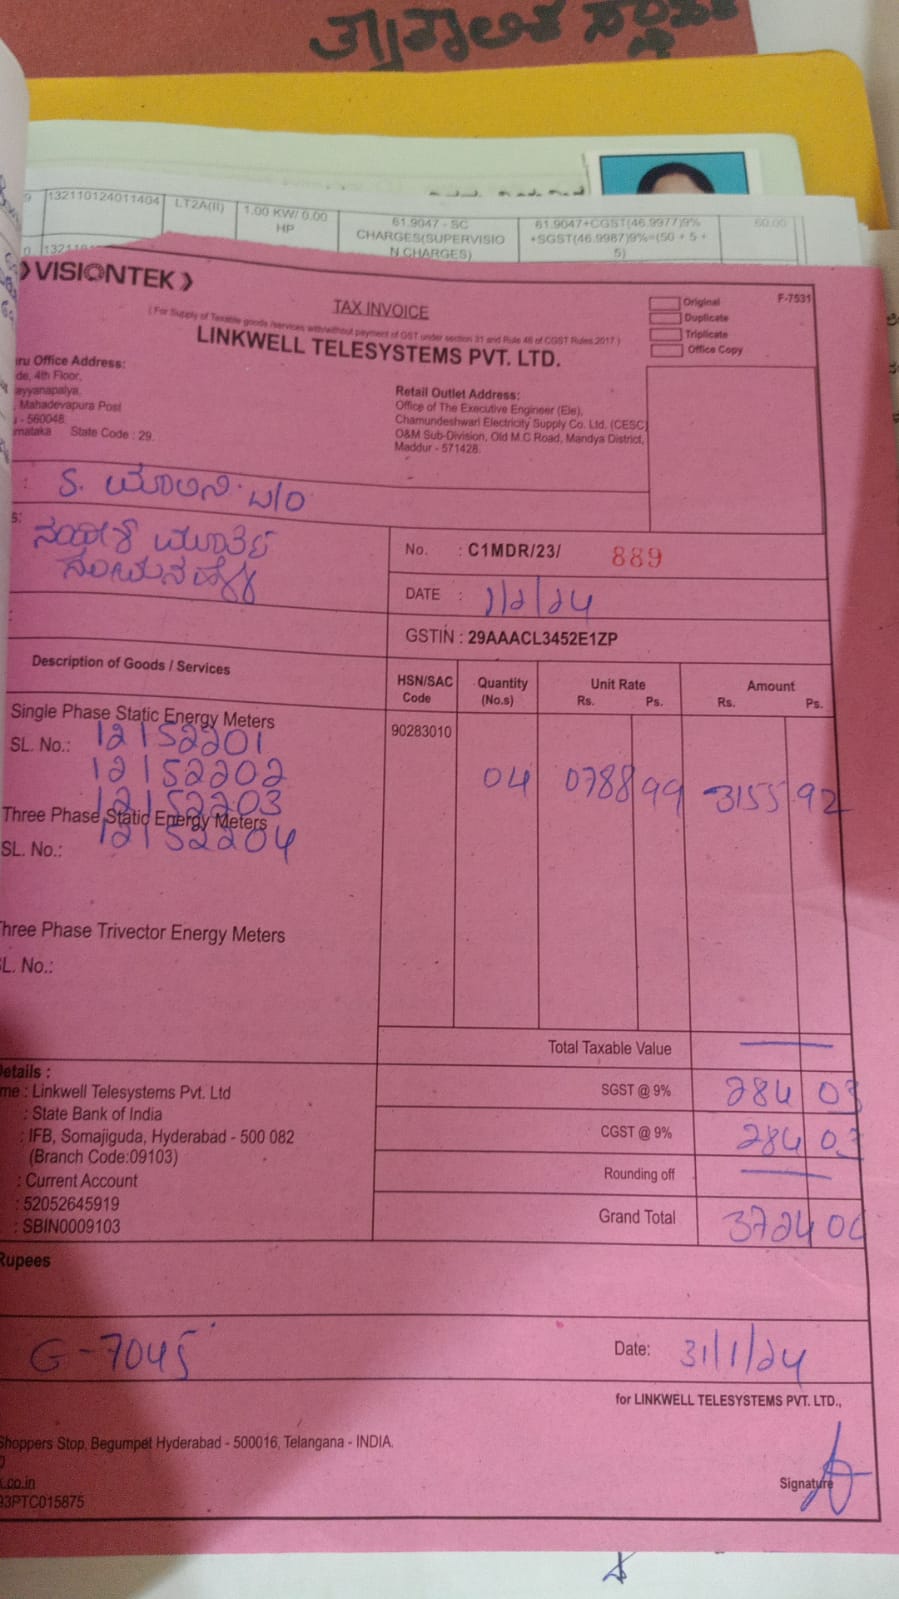 ತ್ಯಾಗಾಲಕ
132110124011404 LT2A(II) 1.00 KW/ 0.00 HP 61.9047 - SC CHARGES(SUPERVISION CHARGES) 61.9047+CGST(46.9977)9% +SGST(46.9987)9%=(50 + 5 + 5) 60.00
VISIONTEK
F-7531
TAX INVOICE
Original
Duplicate
Triplicate
Office Copy
( For Supply of Taxable goods /services with/without payment of GST under section 31 and Rule 46 of CGST Rules 2017 )
LINKWELL TELESYSTEMS PVT. LTD.
ru Office Address:
de, 4th Floor,
ayyanapalya,
, Mahadevapura Post
- 560048.
rnataka State Code : 29.
Retail Outlet Address:
Office of The Executive Engineer (Ele),
Chamundeshwari Electricity Supply Co. Ltd. (CESC)
O&M Sub-Division, Old M.C Road, Mandya District,
Maddur - 571428.
No. : C1MDR/23/ 889
DATE : 1/2/24
GSTIN : 29AAACL3452E1ZP
Description of Goods / Services HSN/SAC Code Quantity (No.s) Unit Rate Rs. Ps. Amount Rs. Ps.
Single Phase Static Energy Meters 90283010
SL. No.: 12152201
12152202 04 0788 99 3155 92
12152203
Three Phase Static Energy Meters
12152204
SL. No.:
Three Phase Trivector Energy Meters
SL. No.:
Total Taxable Value
SGST @ 9% 284 03
CGST @ 9% 284 03
Rounding off
Grand Total 3724 00
Details :
me : Linkwell Telesystems Pvt. Ltd
: State Bank of India
: IFB, Somajiguda, Hyderabad - 500 082
(Branch Code:09103)
: Current Account
: 52052645919
: SBIN0009103
Rupees
G-7045
Date: 31/1/24
for LINKWELL TELESYSTEMS PVT. LTD.,
Shoppers Stop, Begumpet Hyderabad - 500016, Telangana - INDIA.
.co.in
93PTC015875
Signature